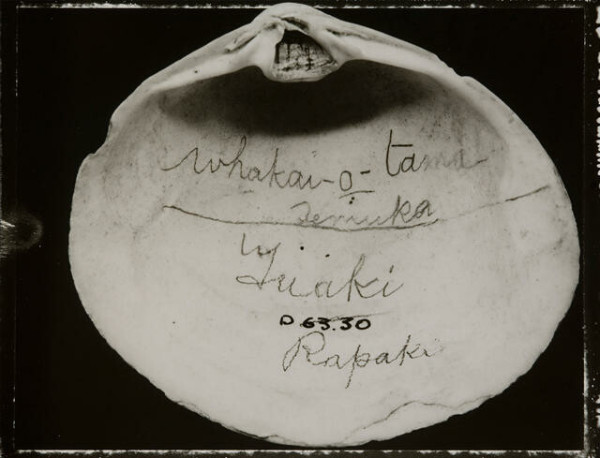 Whakai-o-tama
Temuka
Tuiaki
D 63.30
Rapaki